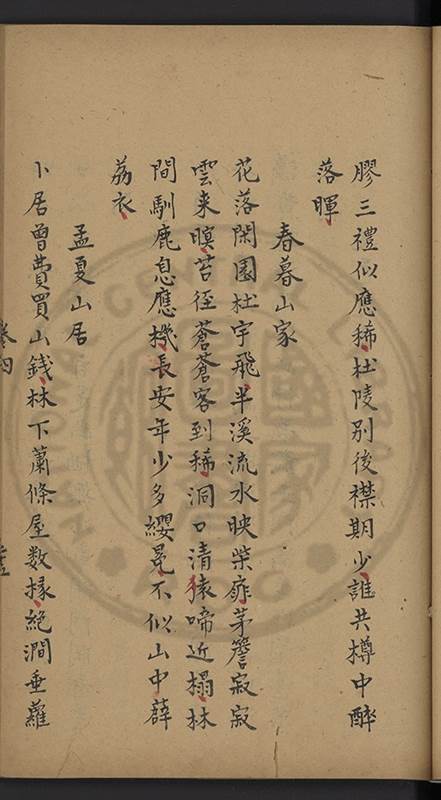 膠三禮似應稀杜陵別後襟期少誰共樽中醉
落暉
春暮山家
花落閑園杜宇飛半溪流水映柴扉茅簷寂寂
雲来暝苔徑蒼蒼客到稀洞口清猿啼近榻林
間馴鹿息應機長安年少多纓冕不似山中薜
荔衣
孟夏山居
卜居曾費買山錢林下蕭條屋数椽絕澗垂蘿
卷四